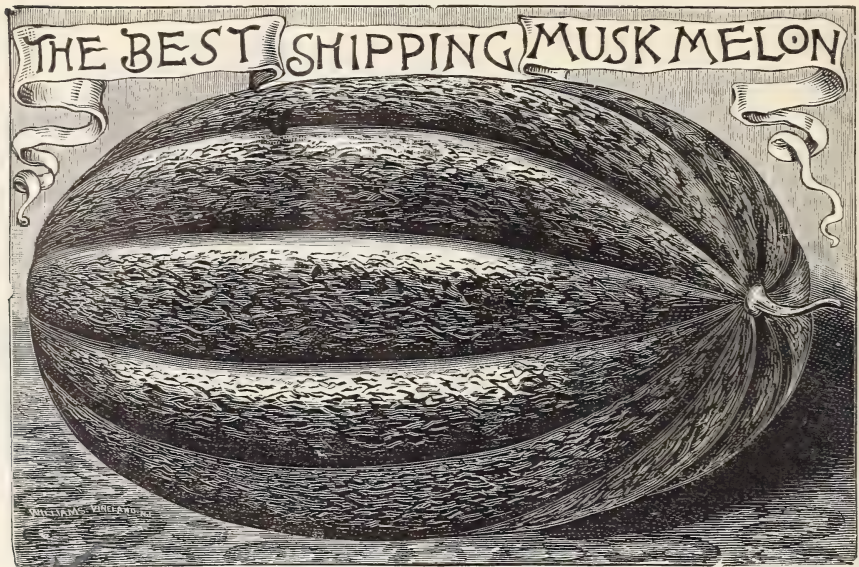 THE BEST SHIPPING MUSK MELON
WILLIAMS. VINELAND. N.J.